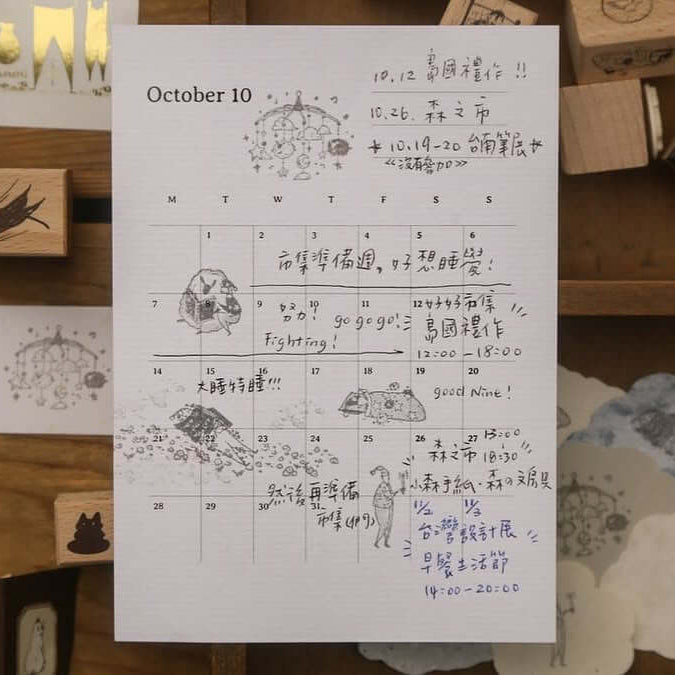 October 10
10.12 島國禮作 !!
10.26. 森之市
★ 10.19-20 台南筆展 ★
《沒有參加》
M T W T F S S
1 2 3 4 5 6
市集準備週,好想睡覺!
7 8 9 10 11 12
努力! go go go! 好好市集
Fighting! 島國禮作
12:00 - 18:00
14 15 16 17 18 19 20
大睡特睡!!! good Nint!
21 22 23 24 25 26 27
13:00
森之市 18:30
小森手紙・森の文房具
28 29 30 31
然後再準備
市集(伊勺)
11/2 11/3
台灣設計展
早餐生活節
14:00-20:00